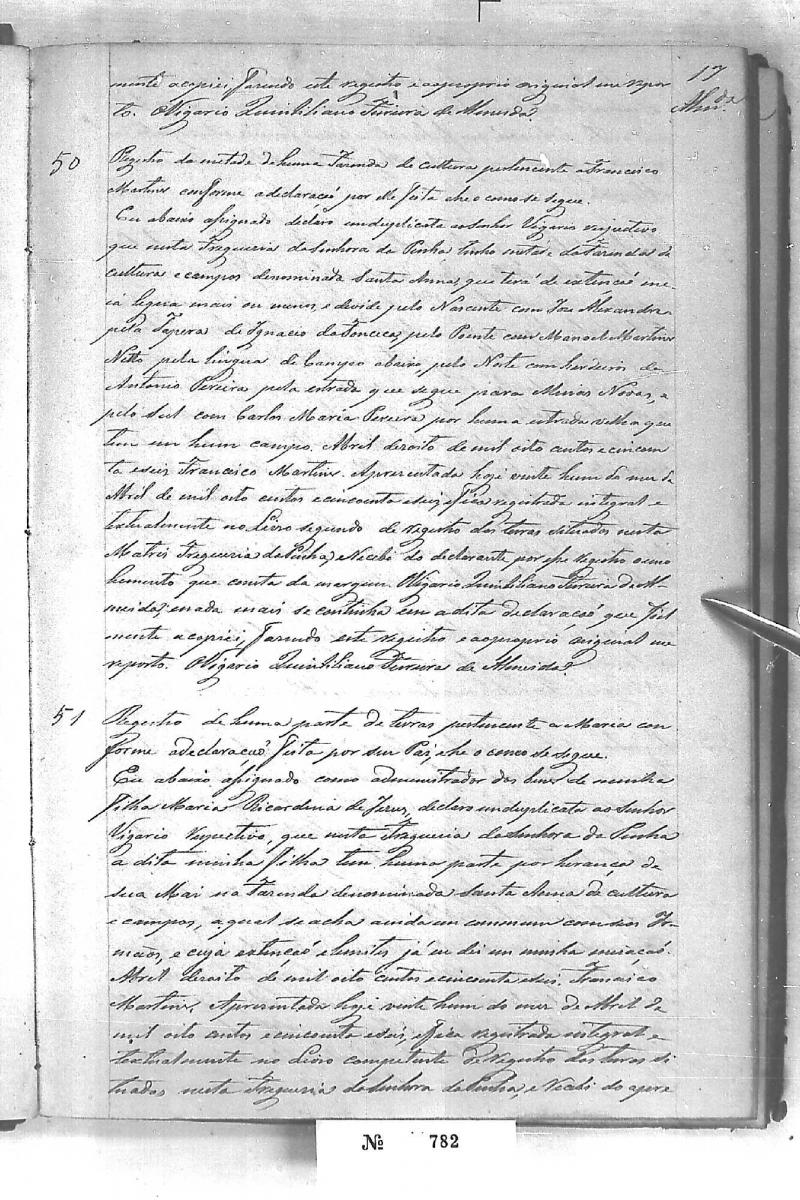 17
Almda
mente a copiei, fazendo este registro e ao proprio original me repor
to. O Vigario Quintiliano Ferreira de Almeida.
50
Registro da metade de huma Fazenda de cultura pertencente a Francisco
Martins conforme a declaração por elle feita che o como se segue.
Eu abaixo assignado declaro em duplicata ao senhor Vigario respectivo
que nesta Freguezia da Senhora da Penha tenho metade da Fazenda de
cultura e campos denominada Santa Anna, que terá de extenção me
ia legua mais ou menos, e divide pelo Nascente com Joze Alexandre
pela Tapera de Ignacio da Fonceca, pelo Poente com Manoel Martins
Netto pela lingua de Campo abaixo, pelo Norte com herdeiros de
Antonio Pereira pela estrada que segue para Minas Novas, e
pelo Sul com Carlos Maria Pereira por huma estrada velha que
tem em hum campo. Abril dezoito de mil oito centos e cincoen
ta e seis. Francisco Martins. Aprezentada hoje vinte hum do mez de
Abril de mil oito centos e cincoenta e seis, e fica registrada integral e
textualmente no Livro segundo de registro das terras situados nesta
Matris Freguezia da Penha, e Recebi do declarante por esse registro o emo
lumento que consta da margem. O Vigario Quintiliano Ferreira de Al
meida, e nada mais se continha em a dita declaração que fiel
mente a copiei, fazendo este registro e ao proprio original me
reporto. O Vigario Quintiliano Ferreira de Almeida.
51
Registro de huma parte de terras pertencente a Maria con
forme a declaração feita por seu Pai, che o como se segue.
Eu abaixo assignado como administrador dos bens de minha
filha Maria Ricardina de Jesus, declaro em duplicata ao senhor
Vigario respectivo, que nesta Freguezia da Senhora da Penha
a dita minha filha tem huma parte por herança de
sua Mai na Fazenda denominada Santa Anna de cultura
e campos, a qual se acha ainda em commum com seos Ir
mãos, e cuja extenção e lemites já eu dei em minha
Abril dezoito de mil oito centos e cincoenta e seis. Francisco
Martins. Aprezentada hoje vinte hum do mez de Abril de
mil oito centos e cincoenta e seis, e fica registrada integral e
textualmente no Livro competente de registro das terras si
tuados nesta Freguezia da Senhora da Penha, e Recebi do apre
№ 782